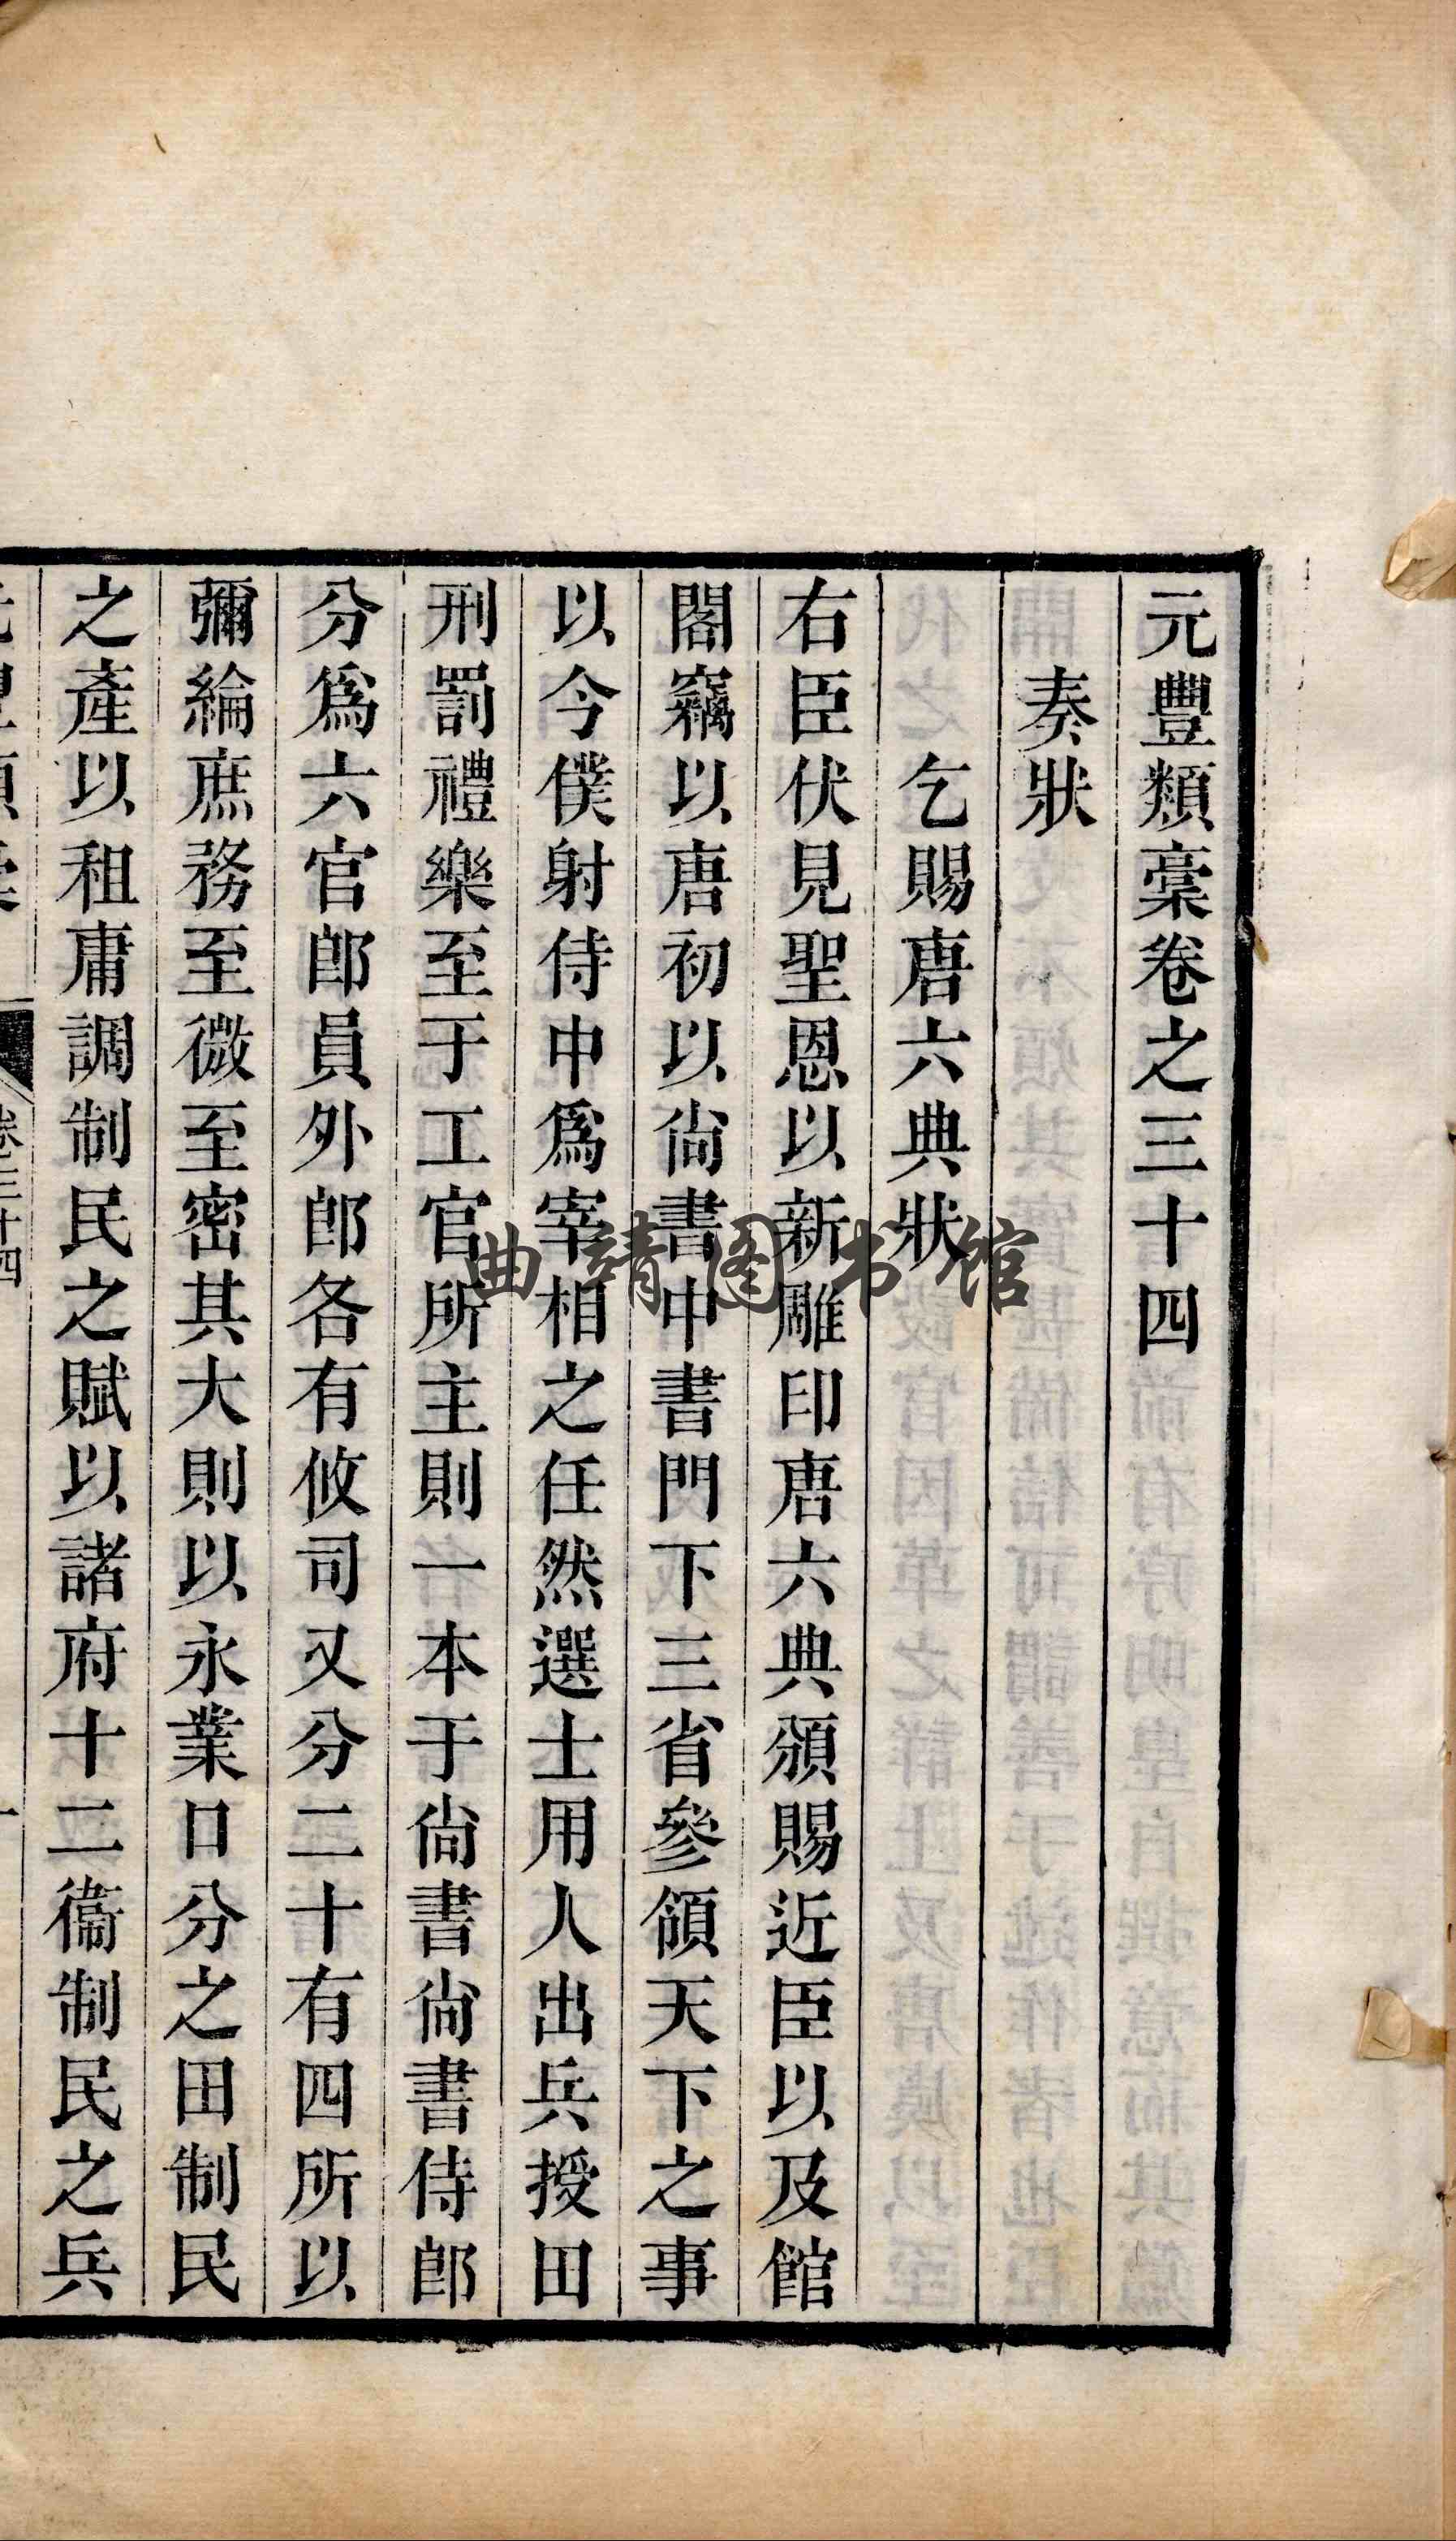 元豐類稾卷之三十四
奏狀
乞賜唐六典狀
右臣伏見聖恩以新雕印唐六典頒賜近臣以及館
閣竊以唐初以尚書中書門下三省參領天下之事
以今僕射侍中爲宰相之任然選士用人出兵授田
刑罰禮樂至于工官所主則一本于尚書尚書侍郎
分爲六官郎員外郎各有攸司又分二十有四所以
彌綸庶務至微至密其大則以永業口分之田制民
之產以租庸調制民之賦以諸府十二衞制民之兵
卷三十四
曲靖图书馆